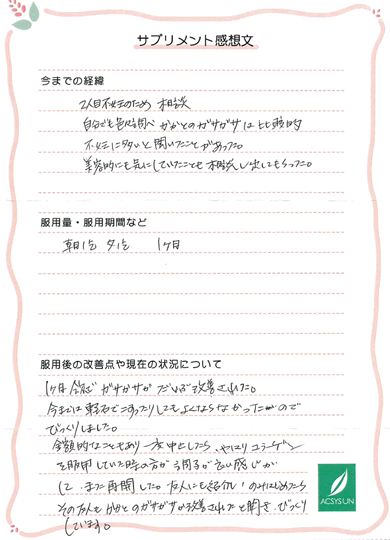 サプリメント感想文
今までの経緯
2人目不妊のため 相談
自分でも色々調べ かかとのガサガサは比較的
不妊に多いと聞いたことがあった。
美容的にも気にしていたことも相談し出してもらった。
服用量・服用期間など
朝1包 夕1包 1ヶ月
服用後の改善点や現在の状況について
1ヶ月 ガサガサが だいぶ改善された。
今までは軽石でこすったりしてもよくならなかったので
びっくりしました。
金額的なこともあり 一度中止したら、やはりコラーゲン
を服用していた時の方が 調子が良い感じが
して、また再開した。友人にも紹介し のみはじめたら
その友人もかかとのガサガサが改善されたと聞き、びっくり
しています。
ACSYSUN